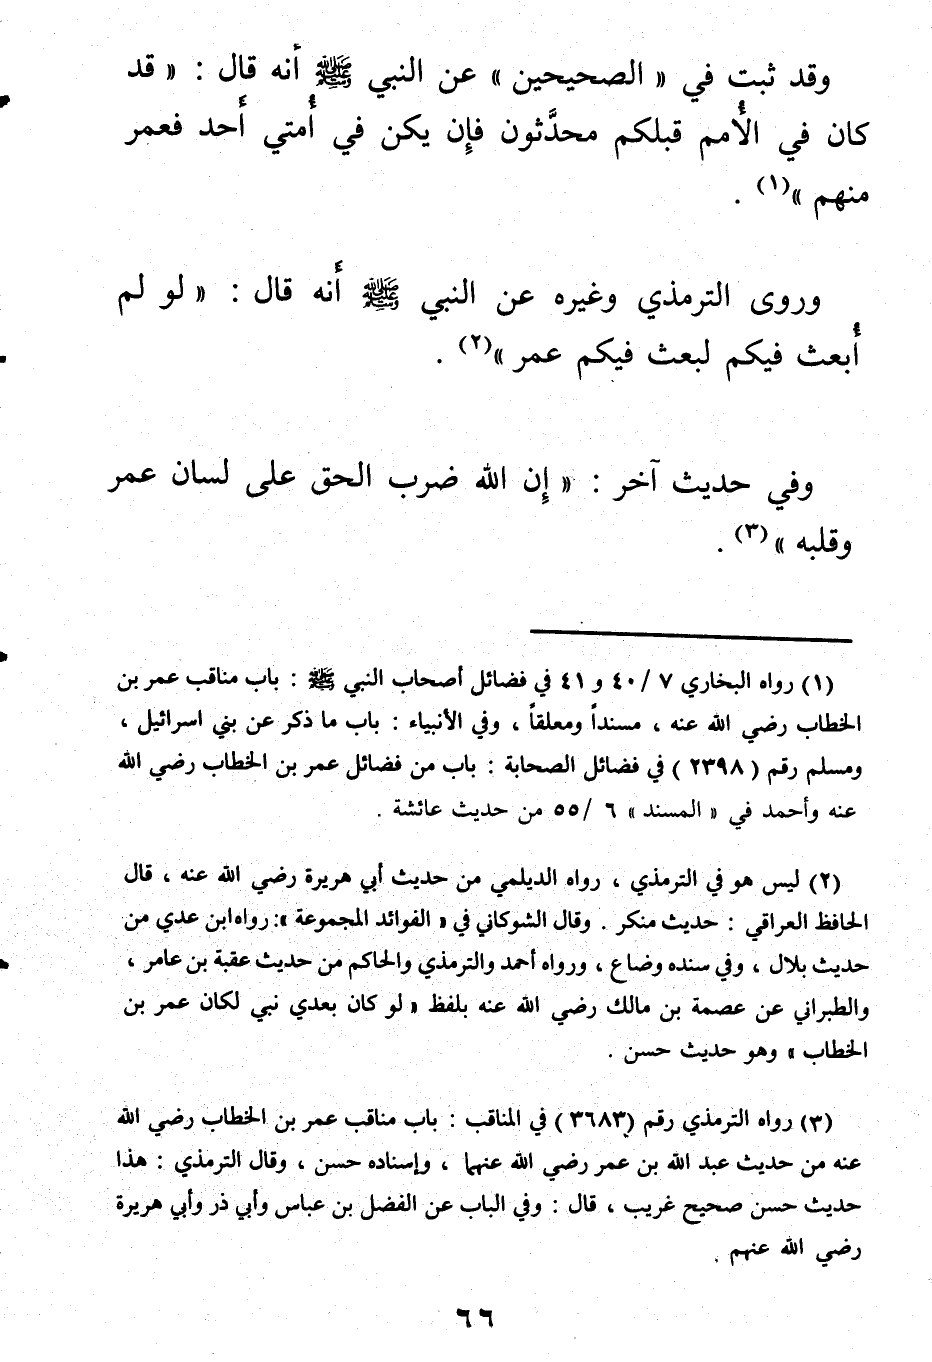 وقد ثبت في « الصحيحين » عن النبي ﷺ أنه قال : « قد
كان في الأُمم قبلكم محدَّثون فإِن يكن في أُمتي أَحد فعمر
منهم »(١) .
وروى الترمذي وغيره عن النبي ﷺ أَنه قال : « لو لم
أُبعث فيكم لبعث فيكم عمر »(٢) .
وفي حديث آخر : « إِن الله ضرب الحق على لسان عمر
وقلبه »(٣) .
(١) رواه البخاري ٧ /٤٠ و ٤١ في فضائل أصحاب النبي ﷺ : باب مناقب عمر بن
الخطاب رضي الله عنه ، مسنداً ومعلقاً ، وفي الأنبياء : باب ما ذكر عن بني اسرائيل ،
ومسلم رقم ( ٢٣٩٨ ) في فضائل الصحابة : باب من فضائل عمر بن الخطاب رضي الله
عنه وأحمد في « المسند » ٦ /٥٥ من حديث عائشة .
(٢) ليس هو في الترمذي ، رواه الديلمي من حديث أبي هريرة رضي الله عنه ، قال
الحافظ العراقي : حديث منكر . وقال الشوكاني في « الفوائد المجموعة »: رواه ابن عدي من
حديث بلال ، وفي سنده وضاع ، ورواه أحمد والترمذي والحاكم من حديث عقبة بن عامر ،
والطبراني عن عصمة بن مالك رضي الله عنه بلفظ « لو كان بعدي نبي لكان عمر بن
الخطاب » وهو حديث حسن .
(٣) رواه الترمذي رقم (٣٦٨٣ ) في المناقب : باب مناقب عمر بن الخطاب رضي الله
عنه من حديث عبد الله بن عمر رضي الله عنهما ، وإسناده حسن ، وقال الترمذي : هذا
حديث حسن صحيح غريب ، قال : وفي الباب عن الفضل بن عباس وأبي ذر وأبي هريرة
رضي الله عنهم .
٦٦